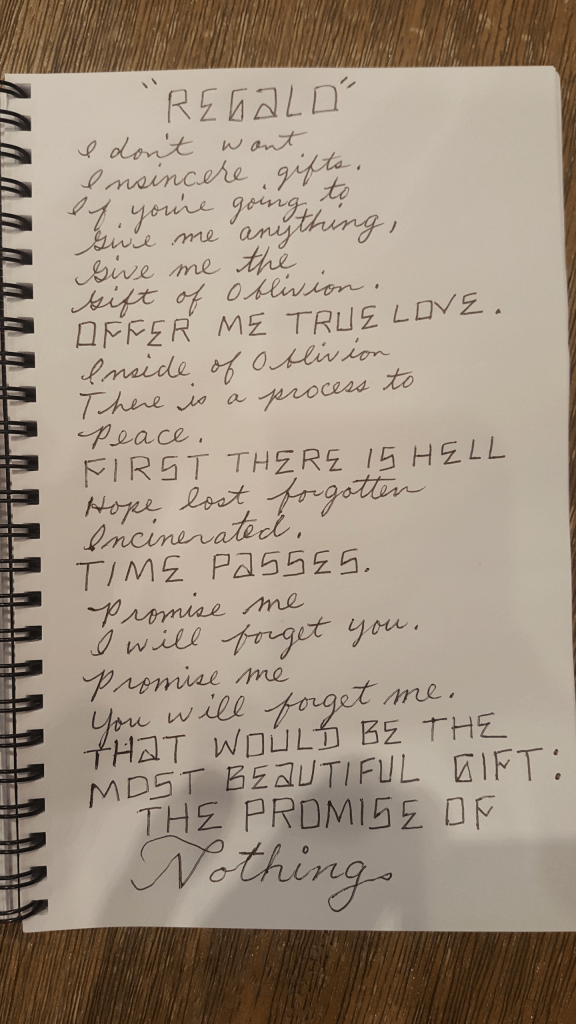 "REGALO"
I don't want
Insincere gifts.
If you're going to
Give me anything,
Give me the
Gift of Oblivion.
OFFER ME TRUE LOVE.
Inside of Oblivion
There is a process to
Peace.
FIRST THERE IS HELL
Hope lost forgotten
Incinerated.
TIME PASSES.
Promise me
I will forget you.
Promise me
You will forget me.
THAT WOULD BE THE
MOST BEAUTIFUL GIFT:
THE PROMISE OF
Nothing.